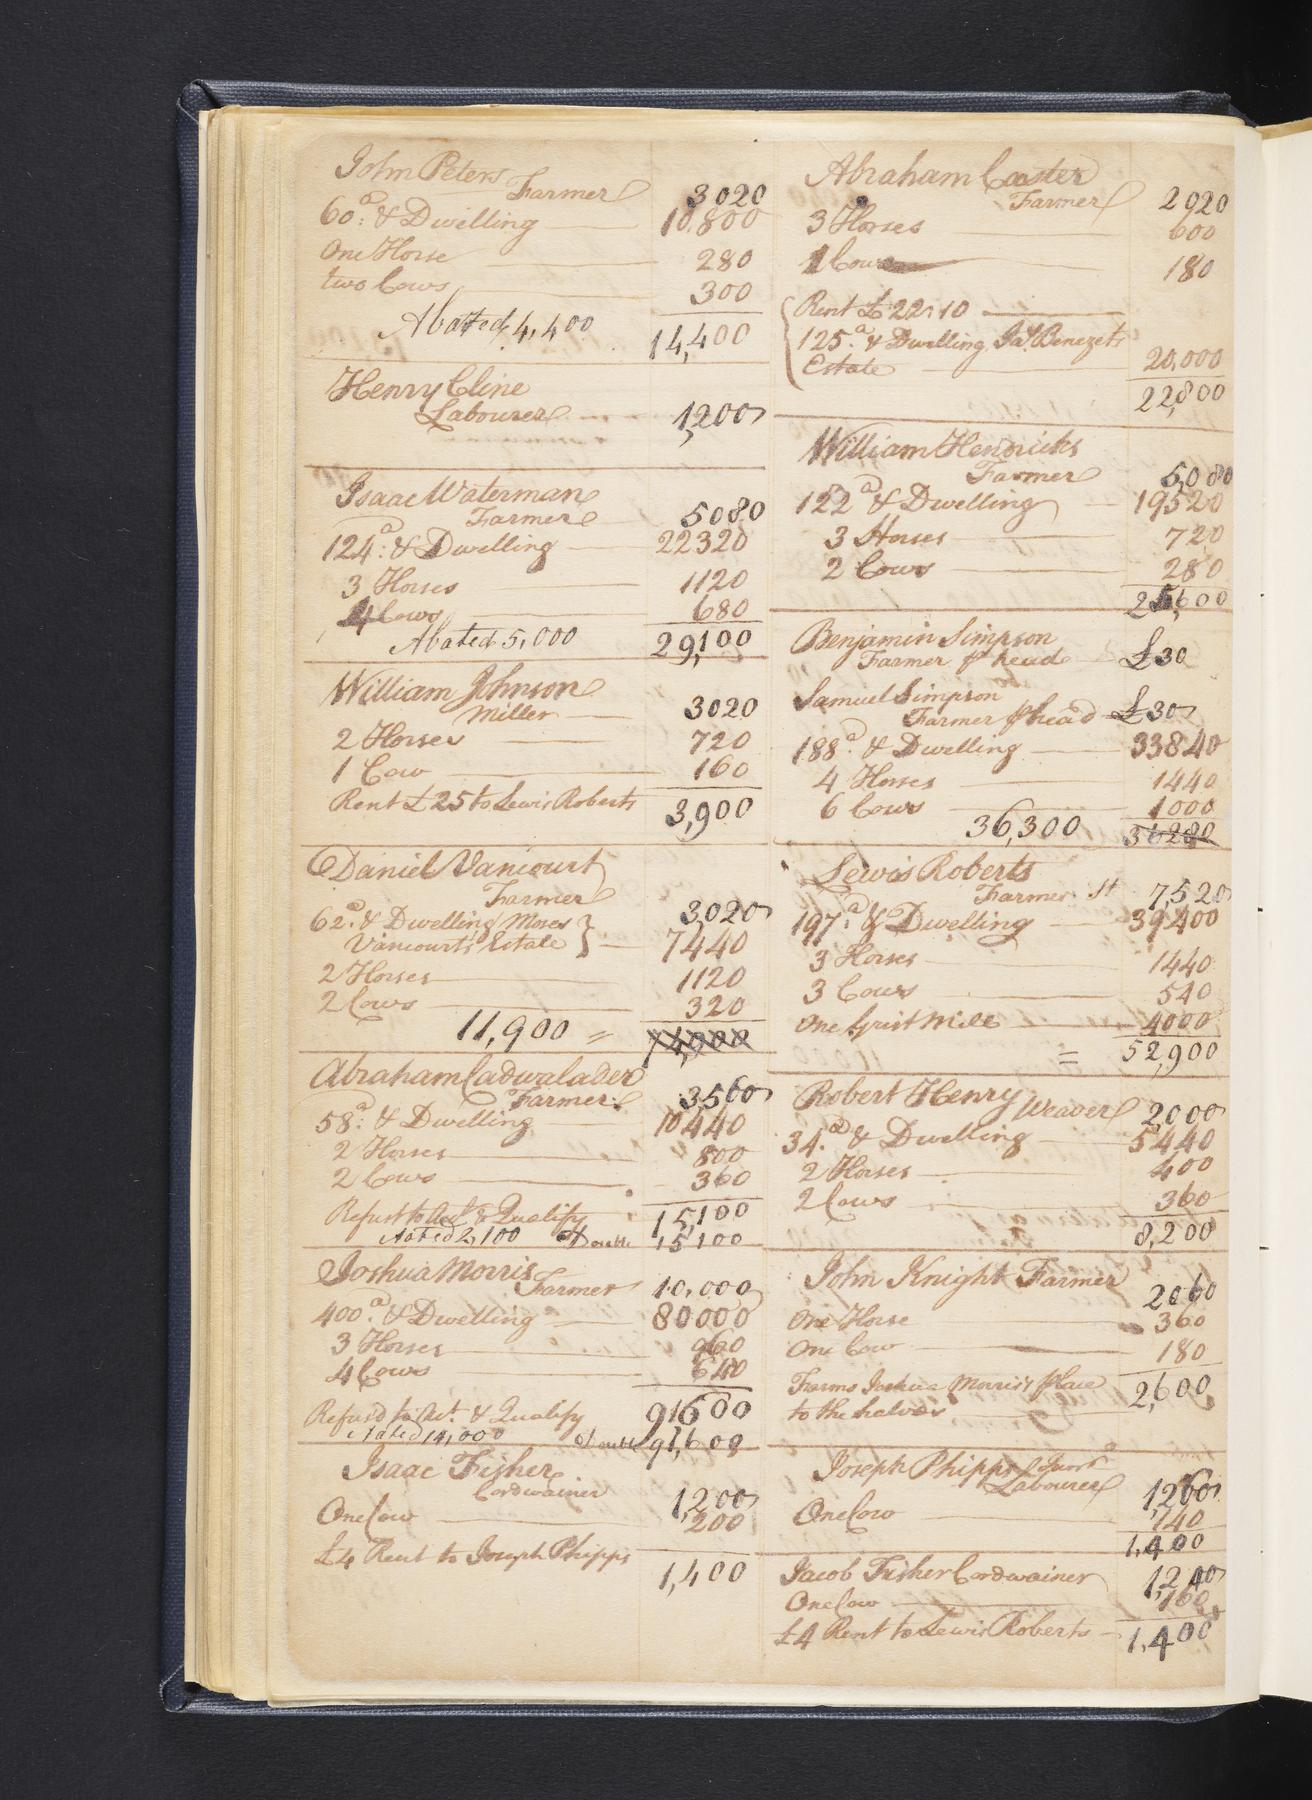 John Peters
Farmer 3020
60.a & Dwelling 10,800
One Horse 280
two Cows 300
Abated 4,400 14,400
Henry Cline
Labourer 1,200
Isaac Waterman
Farmer 5080
124.a & Dwelling 22320
3 Horses 1120
4 Cows 680
Abated 5,000 29,100
William Johnson
Miller 3020
2 Horses 720
1 Cow 160
Rent £25 to Lewis Roberts 3,900
Daniel Vancourt
Farmer 3,020
62.a & Dwelling Moses }
Vancourts Estate } 7440
2 Horses 1120
2 Cows 320
11,900 =
Abraham Cadwalader
Farmer 3560
58.a & Dwelling 10440
2 Horses 800
2 Cows 360
Refust to Act & Qualify 15,100
Abated 2,100 Double 15100
Joshua Morris
Farmer 10,000
400.a & Dwelling 80000
3 Horses 960
4 Cows 640
Refusd to Act. & Qualify 91600
Abated 14,000 Double 91,600
Isaac Fisher
Cordwainer 1,200
One Cow 200
£4 Rent to Joseph Phipps 1,400
Abraham Caster
Farmer 2020
3 Horses 600
1 Cow 180
Rent £22:10
125.a & Dwelling Jas Benezets
Estate 20,000
22,800
William Hendricks
Farmer 5,080
122a & Dwelling 19520
3 Horses 720
2 Cows 280
25,600
Benjamin Simpson
Farmer p head £30
Samuel Simpson
Farmer p head £30
188.a & Dwelling 33840
4 Horses 1440
6 Cows 1000
36,300 36280
Lewis Roberts
Farmer St 7,520
197.a & Dwelling 39400
3 Horses 1440
3 Cows 540
One Grist Mill 4000
= 52,900
Robert Henry Weaver 2,000
34.a & Dwelling 5440
2 Horses 400
2 Cows 360
8,200
John Knight Farmer 2060
One Horse 360
One Cow 180
Farms Joshua Morris's place 2,600
to the halves
Joseph Phipps Junr
Labourer 1,260
One Cow 140
1,400
Jacob Fisher Cordwainer 1,240
One Cow 160
£4 Rent to Lewis Roberts 1,400